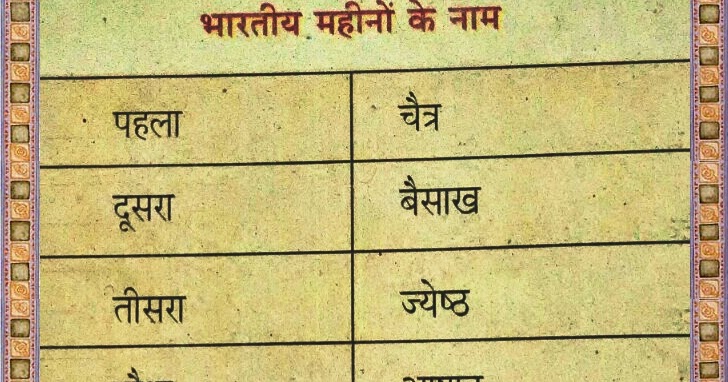 भारतीय महीनों के नाम
पहला चैत्र
दूसरा बैसाख
तीसरा ज्येष्ठ